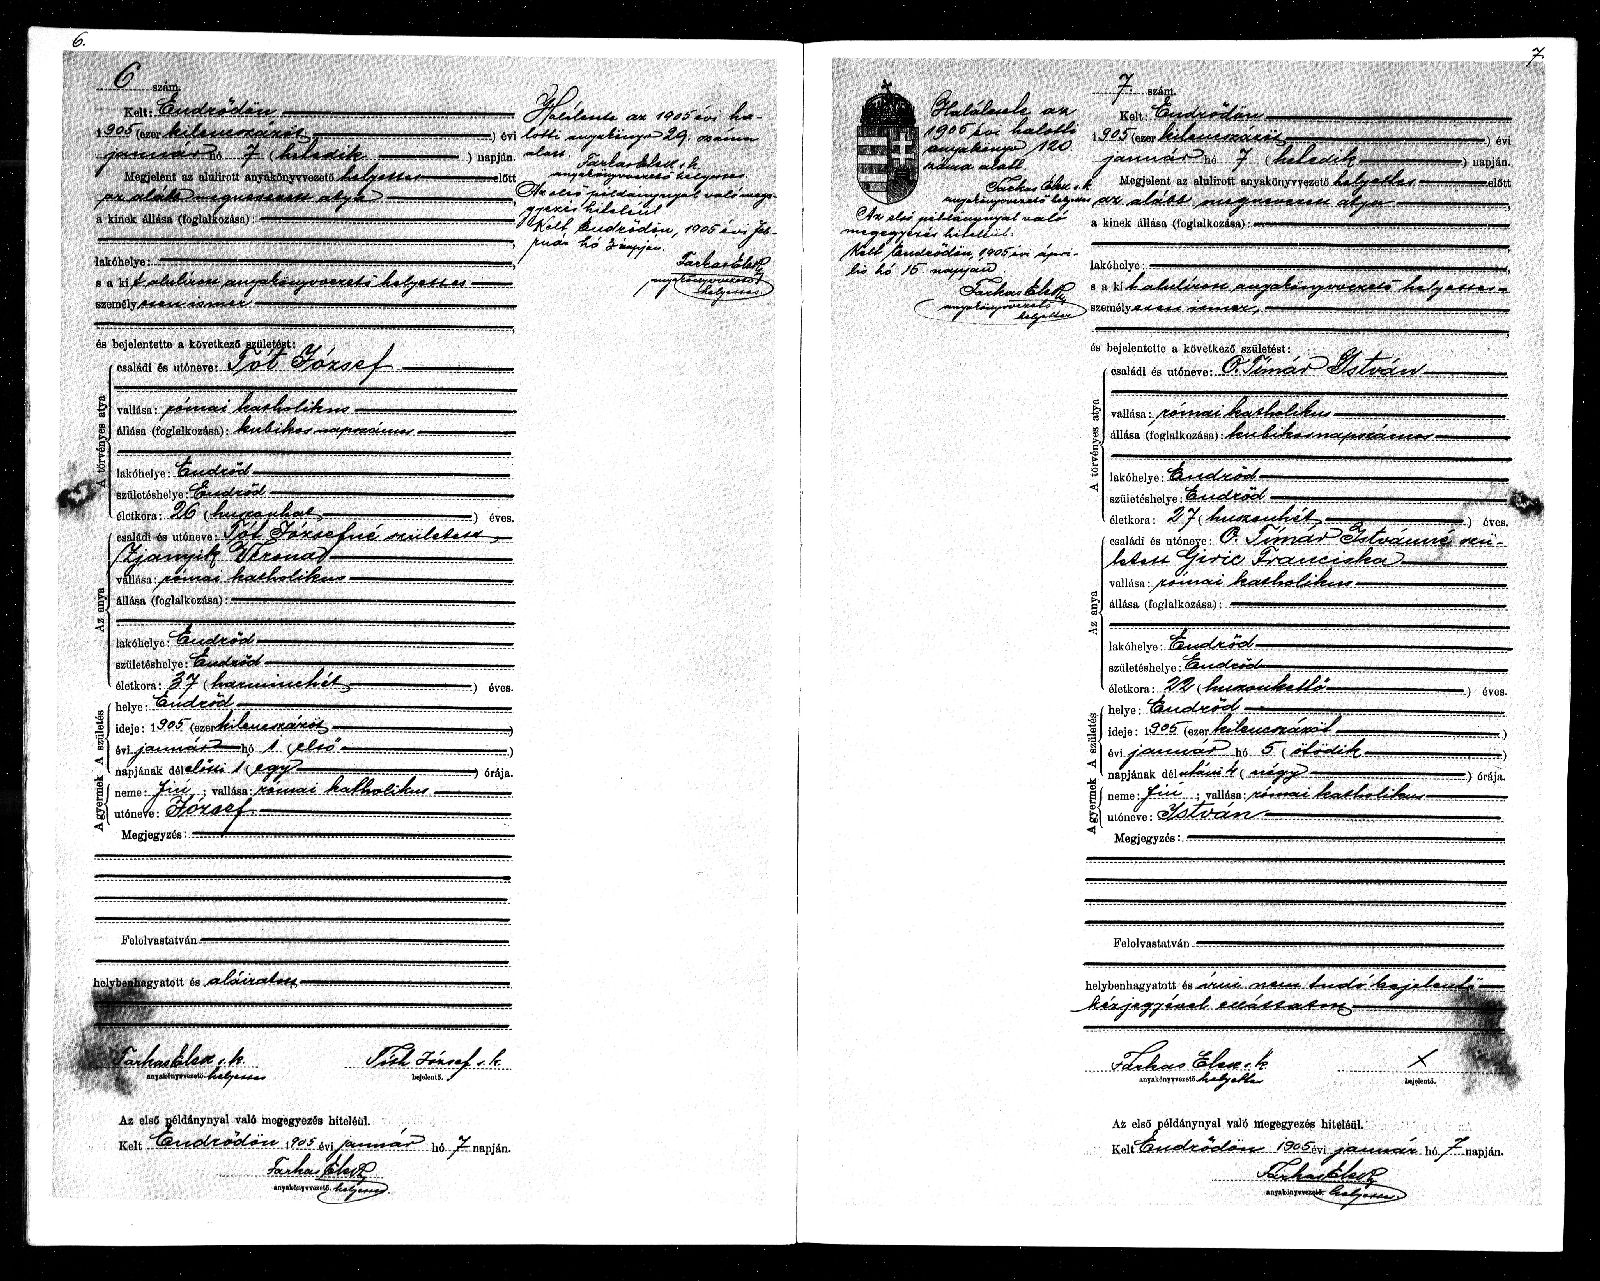 6.
6 szám.
Kelt: Endrődön
1905 (ezer kilenczázöt) évi
január hó 7 (hetedik) napján.
Megjelent az alulirott anyakönyvvezető helyettes előtt
az alább megnevezett atya
a kinek állása (foglalkozása):
lakóhelye:
s a kit alulirott anyakönyvvezető helyettes
személyesen ismer.
és bejelentette a következő születést:
A törvényes atya
családi és utóneve: Tót József
vallása: római katholikus
állása (foglalkozása): kubikos napszámos
lakóhelye: Endrőd
születéshelye: Endrőd
életkora: 26 (huszonhat) éves.
Az anya
családi és utóneve: Tót Józsefné született
Zjanyik Verona
vallása: római katholikus
állása (foglalkozása):
lakóhelye: Endrőd
születéshelye: Endrőd
életkora: 37 (harminchét) éves.
A születés
helye: Endrőd
ideje: 1905 (ezer kilenczázöt)
évi január hó 1 (első)
napjának délelőtti 1 (egy) órája.
A gyermek
neme: fiú; vallása: római katholikus
utóneve: József
Megjegyzés:
Felolvastatván
helybenhagyatott és aláiratott
Farkas Elek s. k. Tóth József s. k.
anyakönyvvezető helyettes bejelentő.
Az első példánynyal való megegyezés hiteléül.
Kelt Endrődön 1905 évi január hó 7 napján.
Farkas Elek
anyakönyvvezető helyettes.
Halálesete az 1905 évi ha-
lotti anyakönyv 29. száma
alatt
Farkas Elek s. k.
anyakönyvvezető helyettes.
Az első példánynyal való megegyezés hiteléül
Kelt Endrődön, 1905 évi feb-
ruár hó 3 napján.
Farkas Elek
anyakönyvvezető
helyettes
7.
Haláleset az
1905 évi halotti
anyakönyv 120
száma alatt
Farkas Elek s. k.
anyakönyvvezető helyettes
Az első példánynyal való
megegyezés hiteléül.
Kelt Endrődön, 1905 évi ápri-
lis hó 15 napján
Farkas Elek
anyakönyvvezető
helyettes
7. szám.
Kelt: Endrődön
1905 (ezer kilenczázöt) évi
január hó 7 (hetedik) napján.
Megjelent az alulirott anyakönyvvezető helyettes előtt
az alább megnevezett atya
a kinek állása (foglalkozása):
lakóhelye:
s a kit alulirott anyakönyvvezető helyettes
személyesen ismer,
és bejelentette a következő születést:
A törvényes atya
családi és utóneve: O. Timár István
vallása: római katholikus
állása (foglalkozása): kubikosnapszámos
lakóhelye: Endrőd
születéshelye: Endrőd
életkora: 27 (huszonhét) éves.
Az anya
családi és utóneve: O. Timár Istvánné szü-
letett Giric Franciska
vallása: római katholikus
állása (foglalkozása):
lakóhelye: Endrőd
születéshelye: Endrőd
életkora: 22 (huszonkettő) éves.
A születés
helye: Endrőd
ideje: 1905 (ezer kilenczázöt)
évi január hó 5 (ötödik)
napjának délutáni 4 (négy) órája.
A gyermek
neme: fiú; vallása: római katholikus
utóneve: István
Megjegyzés:
Felolvastatván
helybenhagyatott és írni nem tudó bejelentő
kézjegyével elláttatott
Farkas Elek s. k. X
anyakönyvvezető helyettes bejelentő.
Az első példánynyal való megegyezés hiteléül.
Kelt Endrődön 1905 évi január hó 7 napján.
Farkas Elek
anyakönyvvezető helyettes